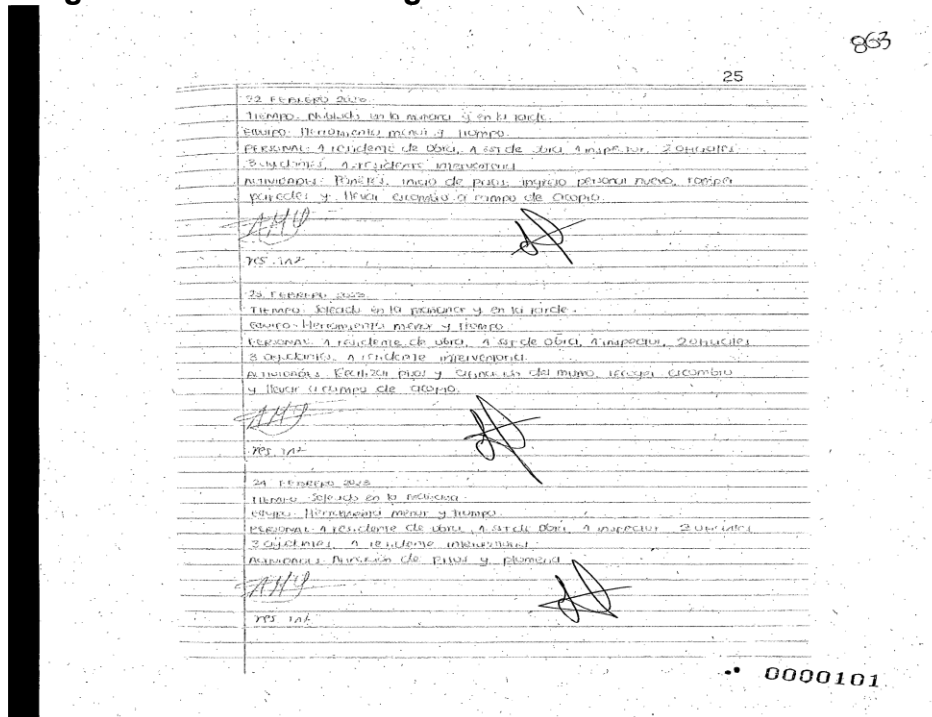 863
25
22 FEBRERO 2023
TIEMPO: Nublado en la mañana y en la tarde.
EQUIPO: Herramienta menor y trompo.
PERSONAL: 1 residente de obra, 1 sst de obra, 1 inspector, 2 oficiales
3 ayudantes, 1 residente interventoria
ACTIVIDADES: inicio de pisos, ingreso personal nuevo, romper
paredes y llevar escombro a rampa de acopio.
res. int
23 FEBRERO 2023
TIEMPO: Soleado en la mañana y en la tarde.
EQUIPO: Herramienta menor y trompo.
PERSONAL: 1 residente de obra, 1 sst de obra, 1 inspector, 2 oficiales
3 ayudantes, 1 residente interventoria.
ACTIVIDADES: Realizar pisos y del mismo, recoger escombro
y llevar a rampa de acopio.
res. int
24 FEBRERO 2023
TIEMPO: Soleado en la mañana
EQUIPO: Herramienta menor y trompo.
PERSONAL: 1 residente de obra, 1 sst de obra, 1 inspector, 2 oficiales
3 ayudantes, 1 residente interventoria.
ACTIVIDADES: de pisos y plomeria
res. int
0000101